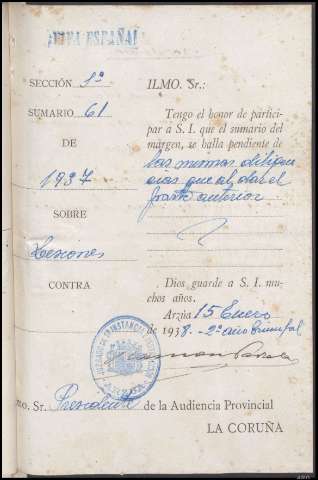 NUEVA ESPAÑA
SECCIÓN 1ª
ILMO. Sr.:
SUMARIO 61
DE
1937
SOBRE
Lesiones
CONTRA
Tengo el honor de partici-
par a S. I. que el sumario del
márgen, se halla pendiente de
las mismas diligen
cias que al dar el
parte anterior
Dios guarde a S. I. mu-
chos años.
Arzúa 15 Enero
de 1938.-2º año triunfal
JUZGADO DE INSTANCIA E INSTRUCCION
ARZUA
mo. Sr. Presidente de la Audiencia Provincial
LA CORUÑA